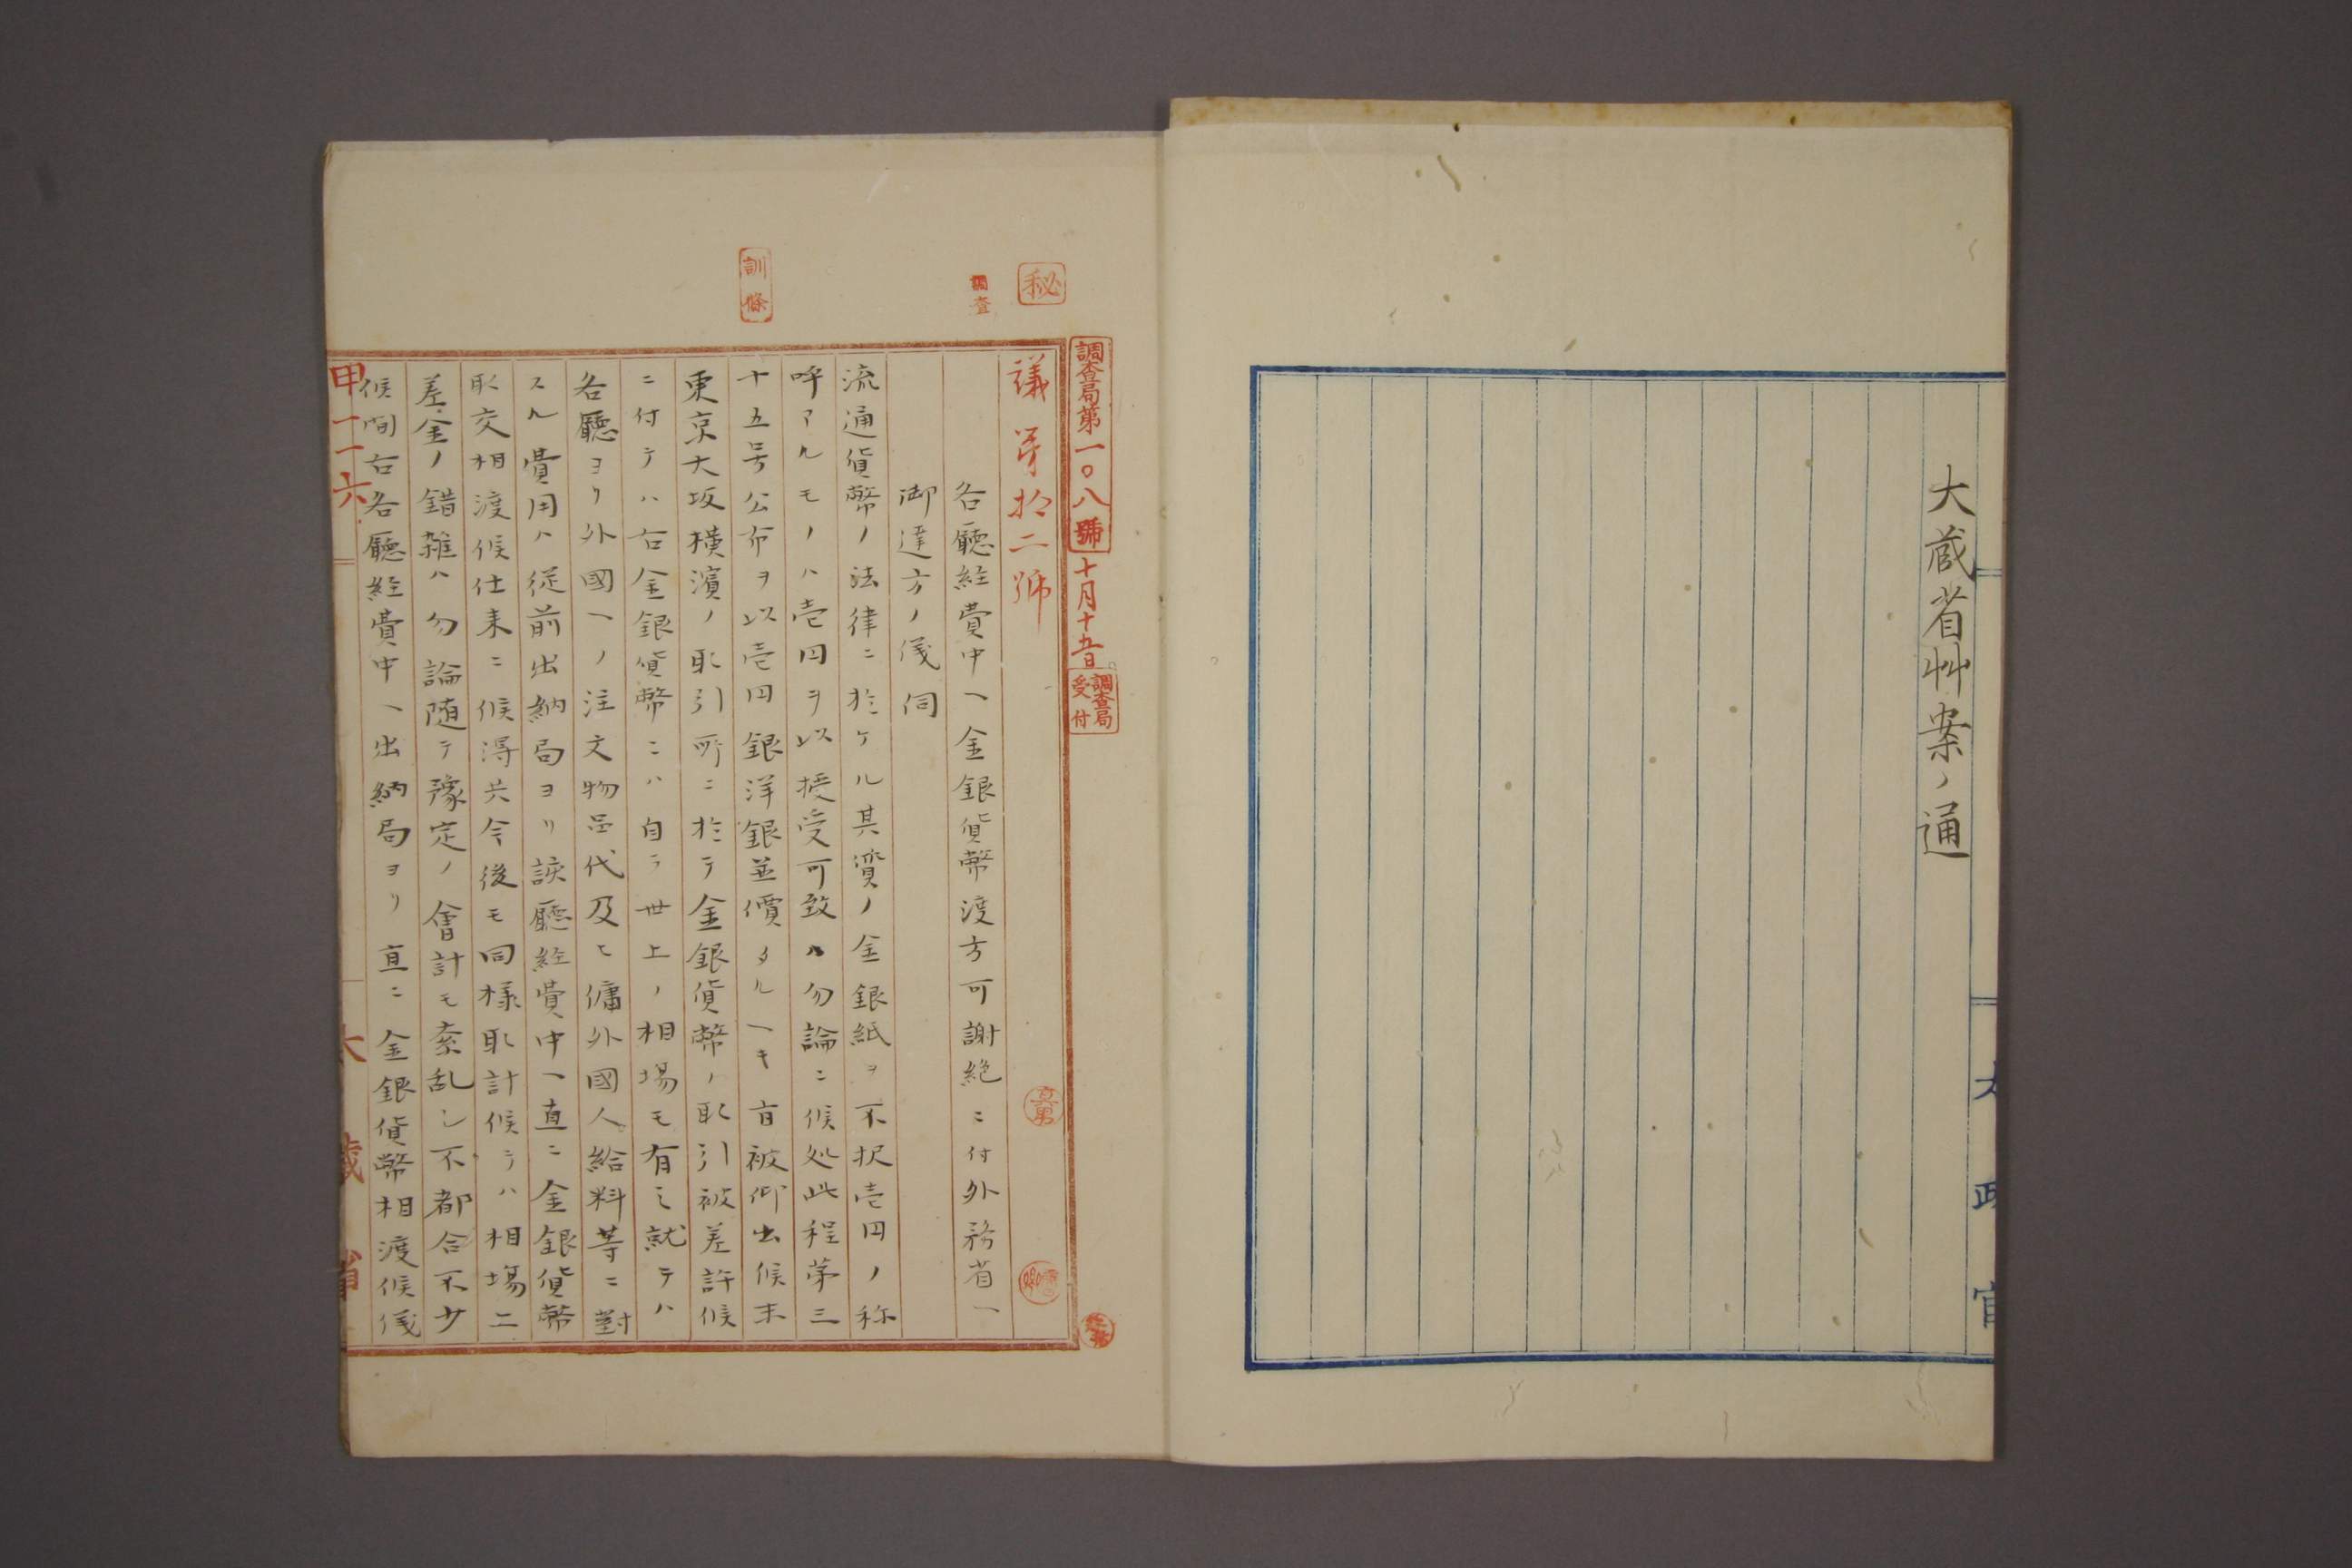 大蔵省艸案ノ通
太政官
秘
調査
訓條
調査局第一〇八號
十月十五日
調査局受付
議第拾二號
各廳経費中ヘ金銀貨幣渡方可謝絶ニ付外務省ヘ
御達方ノ儀伺
流通貨幣ノ法律ニ於ケル其質ノ金銀紙ヲ不択壱円ノ称
呼アルモノハ壱円ヲ以授受可致ハ勿論ニ候処此程第三
十五号公布ヲ以壱円銀洋銀並價タルヘキ旨被仰出候末
東京大坂横濱ノ取引所ニ於テ金銀貨幣ノ取引被差許候
ニ付テハ右金銀貨幣ニハ自ラ世上ノ相場モ有之就テハ
各廳ヨリ外國ヘノ注文物品代及ヒ傭外國人給料等ニ對
スル費用ハ従前出納局ヨリ該廳経費中ヘ直ニ金銀貨幣
取交相渡候仕来ニ候得共今後モ同様取計候テハ相場ニ
差金ノ錯雑ハ勿論随テ豫定ノ會計モ紊乱シ不都合不少
候間右各廳経費中ヘ出納局ヨリ直ニ金銀貨幣相渡候儀
甲一一六
大蔵省